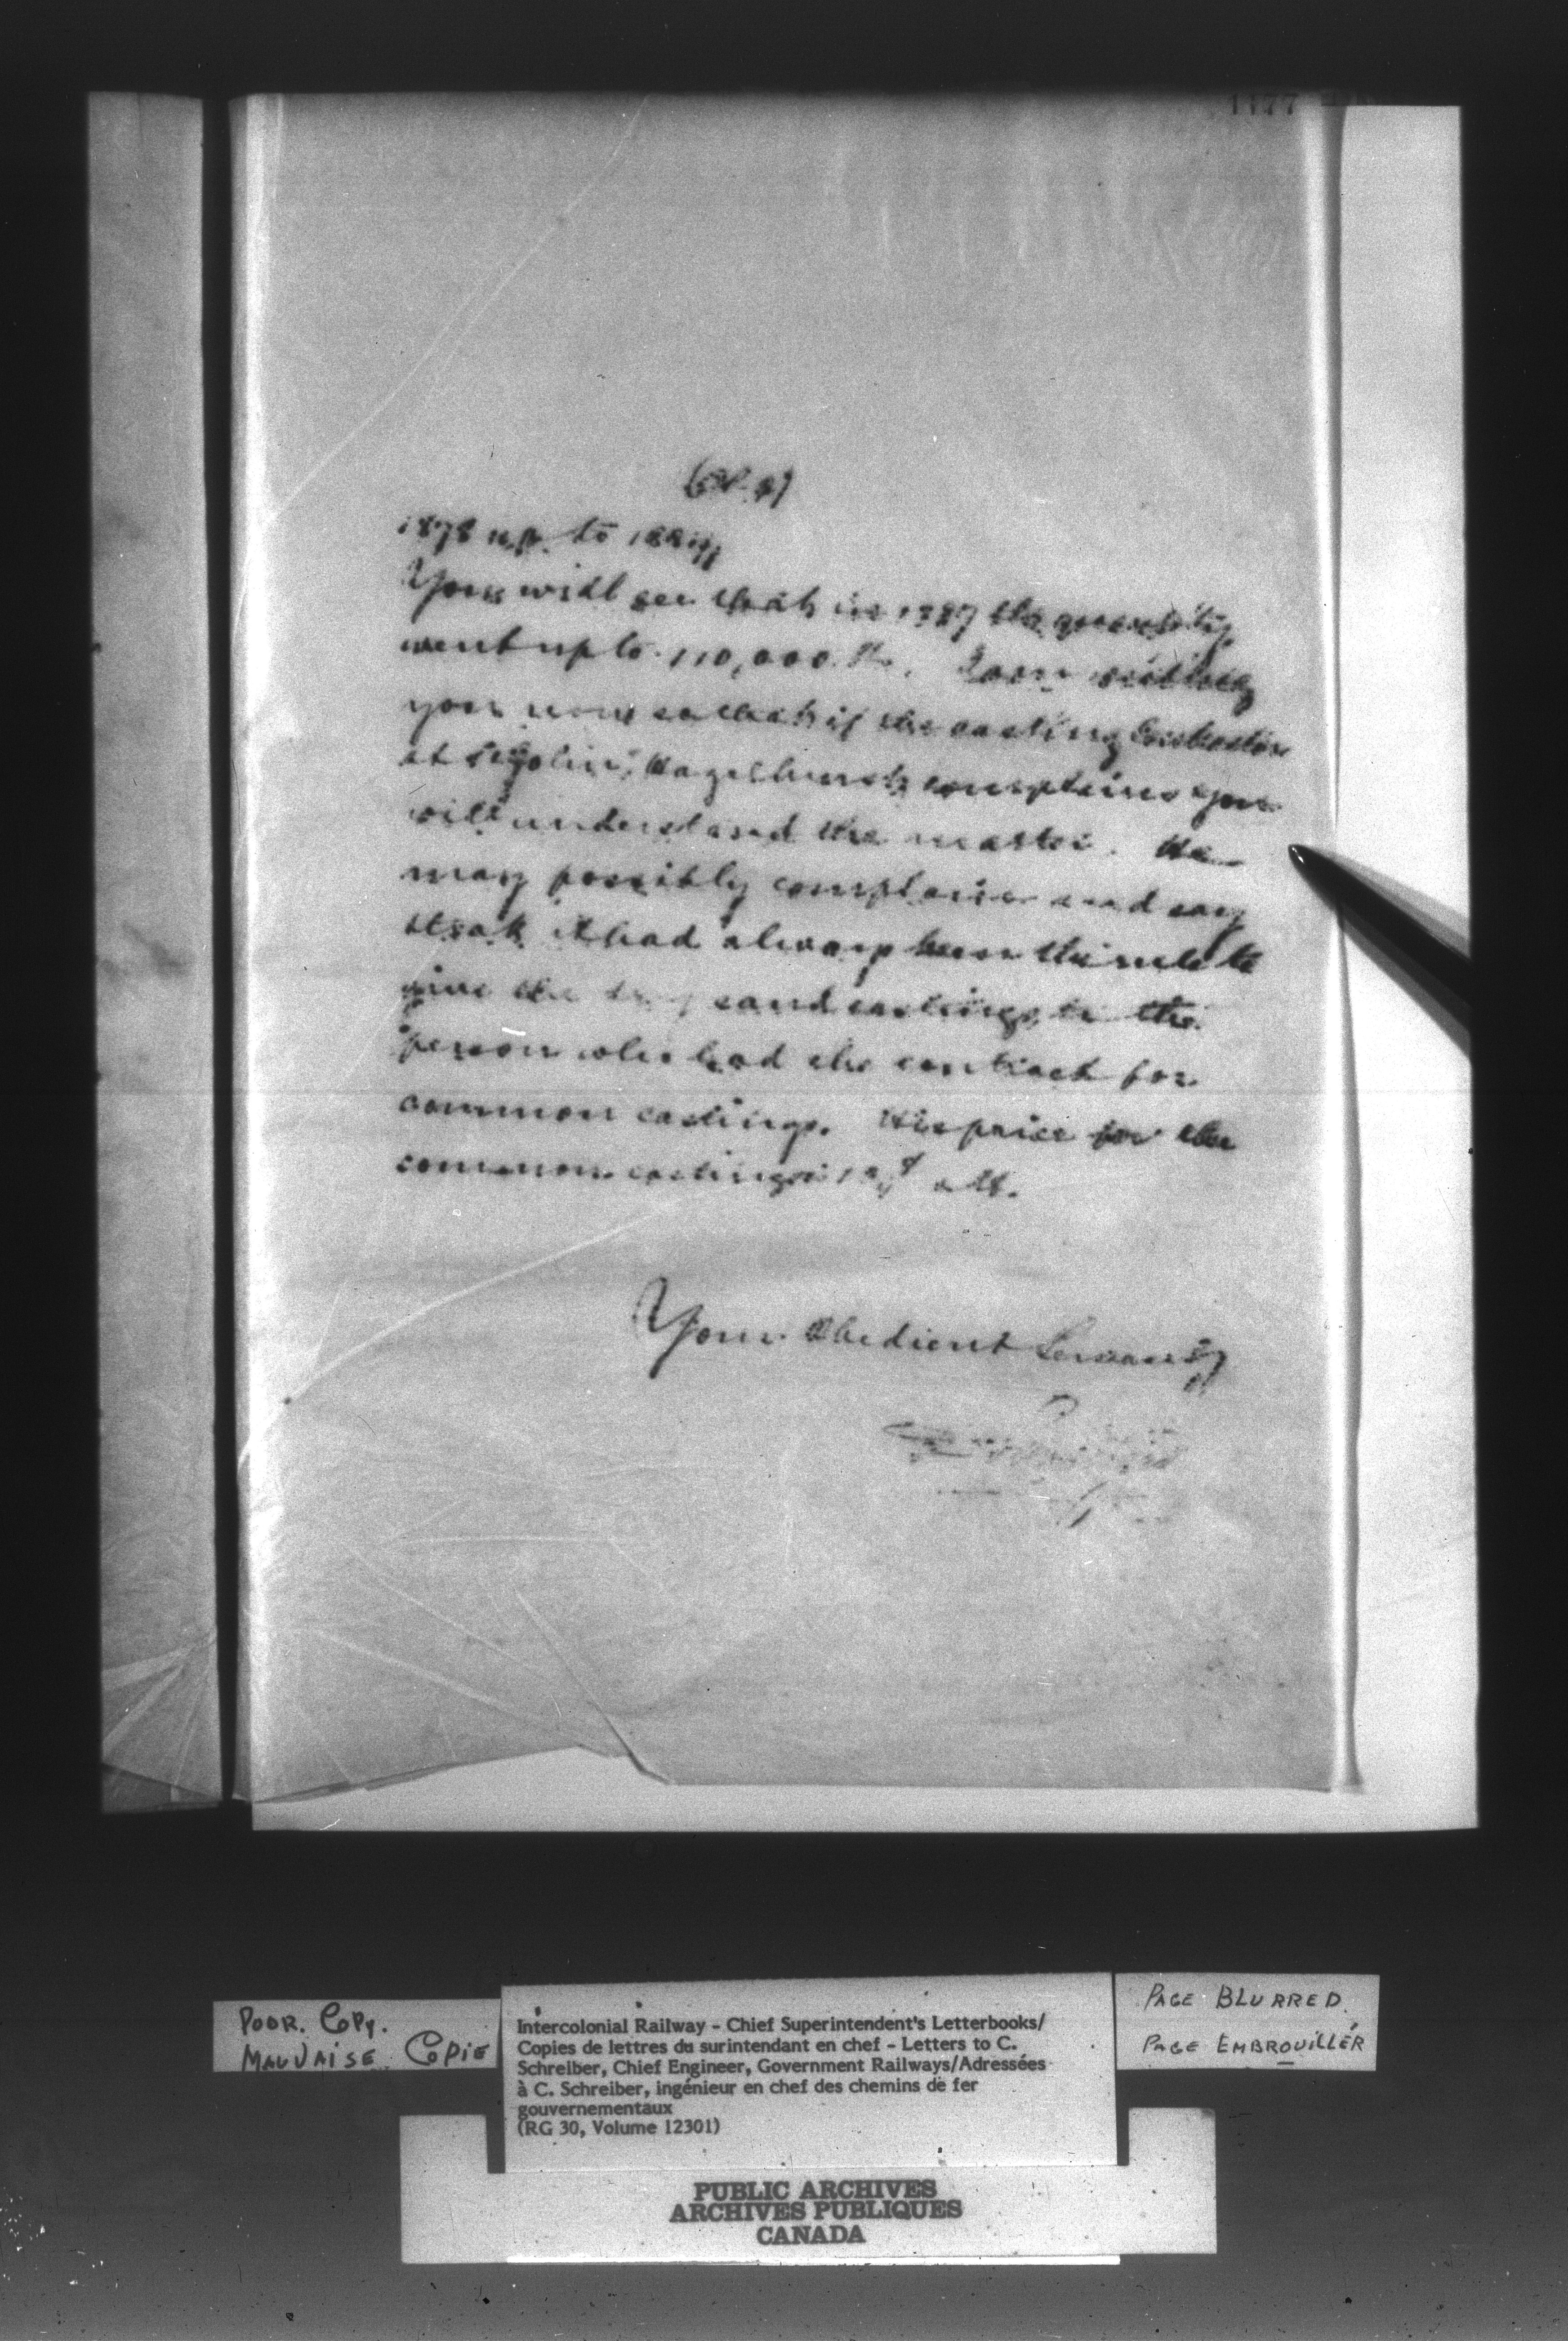 1177
(No 2)
1878 up to 1887
You will see that in 1887 the quantity
went up to 110,000 lb. I am writing
you now so that if the casting Contractor
at St John, Hazelhurst, complains you
will understand the matter. He
may possibly complain and say
that it had always been the rule to
give the sand castings to the
person who had the contract for
common castings. His price for the
common castings is a lb.
Your Obedient Servant
POOR. COPY.
MAUVAISE COPIE
Intercolonial Railway - Chief Superintendent's Letterbooks/
Copies de lettres du surintendant en chef - Letters to C.
Schreiber, Chief Engineer, Government Railways/Adressées
à C. Schreiber, ingénieur en chef des chemins de fer
gouvernementaux
(RG 30, Volume 12301)
PAGE BLURRED.
PAGE EMBROUILLÉR
PUBLIC ARCHIVES
ARCHIVES PUBLIQUES
CANADA